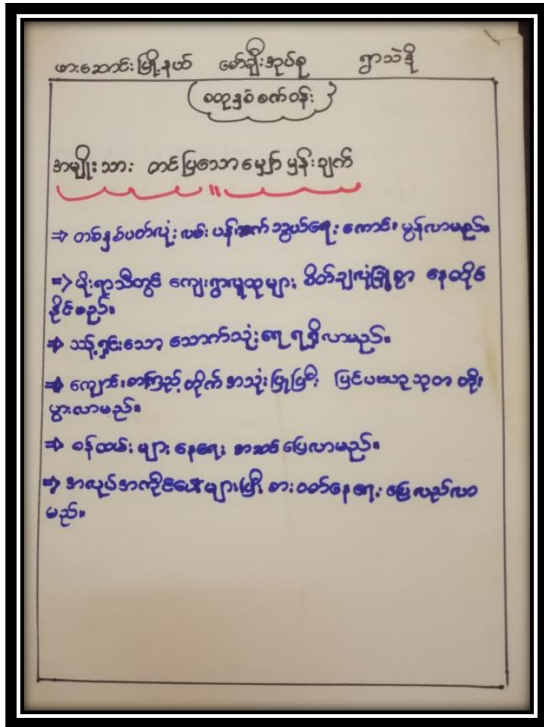 ဖားဆောင်းမြို့နယ် မော်ချီးအုပ်စု ရွာသဲဒို
စတုနှစ်စက်ဝန်း
အမျိုးသား တင်ပြသော မျှော်မှန်းချက်
⇒ တစ်နှစ်ပတ်လုံး လမ်းပန်းဆက်သွယ်ရေး ကောင်းမွန်လာမည်။
⇒ မိုးရာသီတွင် ကျေးရွာလူထုများ စိတ်ချလုံခြုံစွာ နေထိုင်
နိုင်မည်။
⇒ သန့်ရှင်းသော သောက်သုံးရေ ရရှိလာမည်။
⇒ ကျောင်းစာကြည့်တိုက် အသုံးပြုပြီး ပြင်ပဗဟုသုတ တိုး
ပွားလာမည်။
⇒ ဝန်ထမ်းများ နေရေး အဆင်ပြေလာမည်။
⇒ အလုပ်အကိုင်ပေါများပြီး စားဝတ်နေရေး ပြေလည်လာ
မည်။